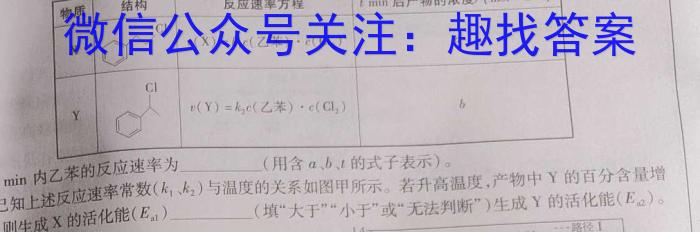 物质 结构 反应速率方程 t min 后产物的浓度
微信公众号关注：趣找答案
Cl
Cl
Y v(Y)=k₂c(乙苯)·c(Cl₂) b
min 内乙苯的反应速率为________(用含 a、b、t 的式子表示)。
已知上述反应速率常数(k₁、k₂)与温度的关系如图甲所示。若升高温度,产物中 Y 的百分含量增
则生成 X 的活化能(Eₐ₁)________(填“大于”“小于”或“无法判断”)生成 Y 的活化能(Eₐ₂)。
路径 I